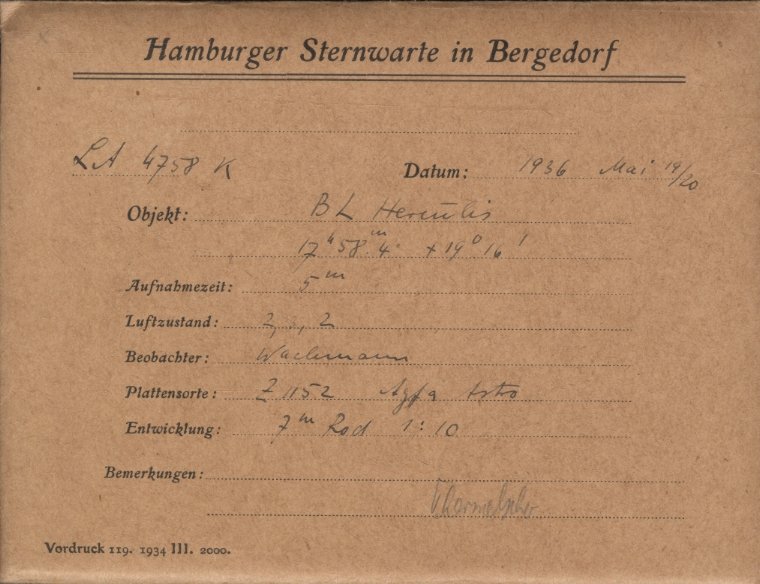 Hamburger Sternwarte in Bergedorf
LA 4758 K Datum: 1936 Mai 19/20
Objekt: BL Herculis
17ʰ 58ᵐ.4 +19° 16'
Aufnahmezeit: 5ᵐ
Luftzustand: 2, 3, 2
Beobachter: Wachmann
Plattensorte: Z 1152 Agfa Astro
Entwicklung: 7ᵐ Rod 1:10
Bemerkungen:
Vordruck 119. 1934 III. 2000.